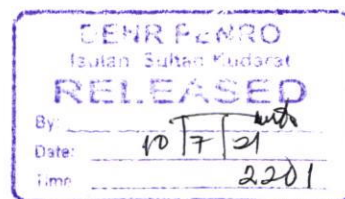 DENR PENRO
Isulan Sultan Kudarat
RELEASED
By:
Date: 10/7/21
Time 2201